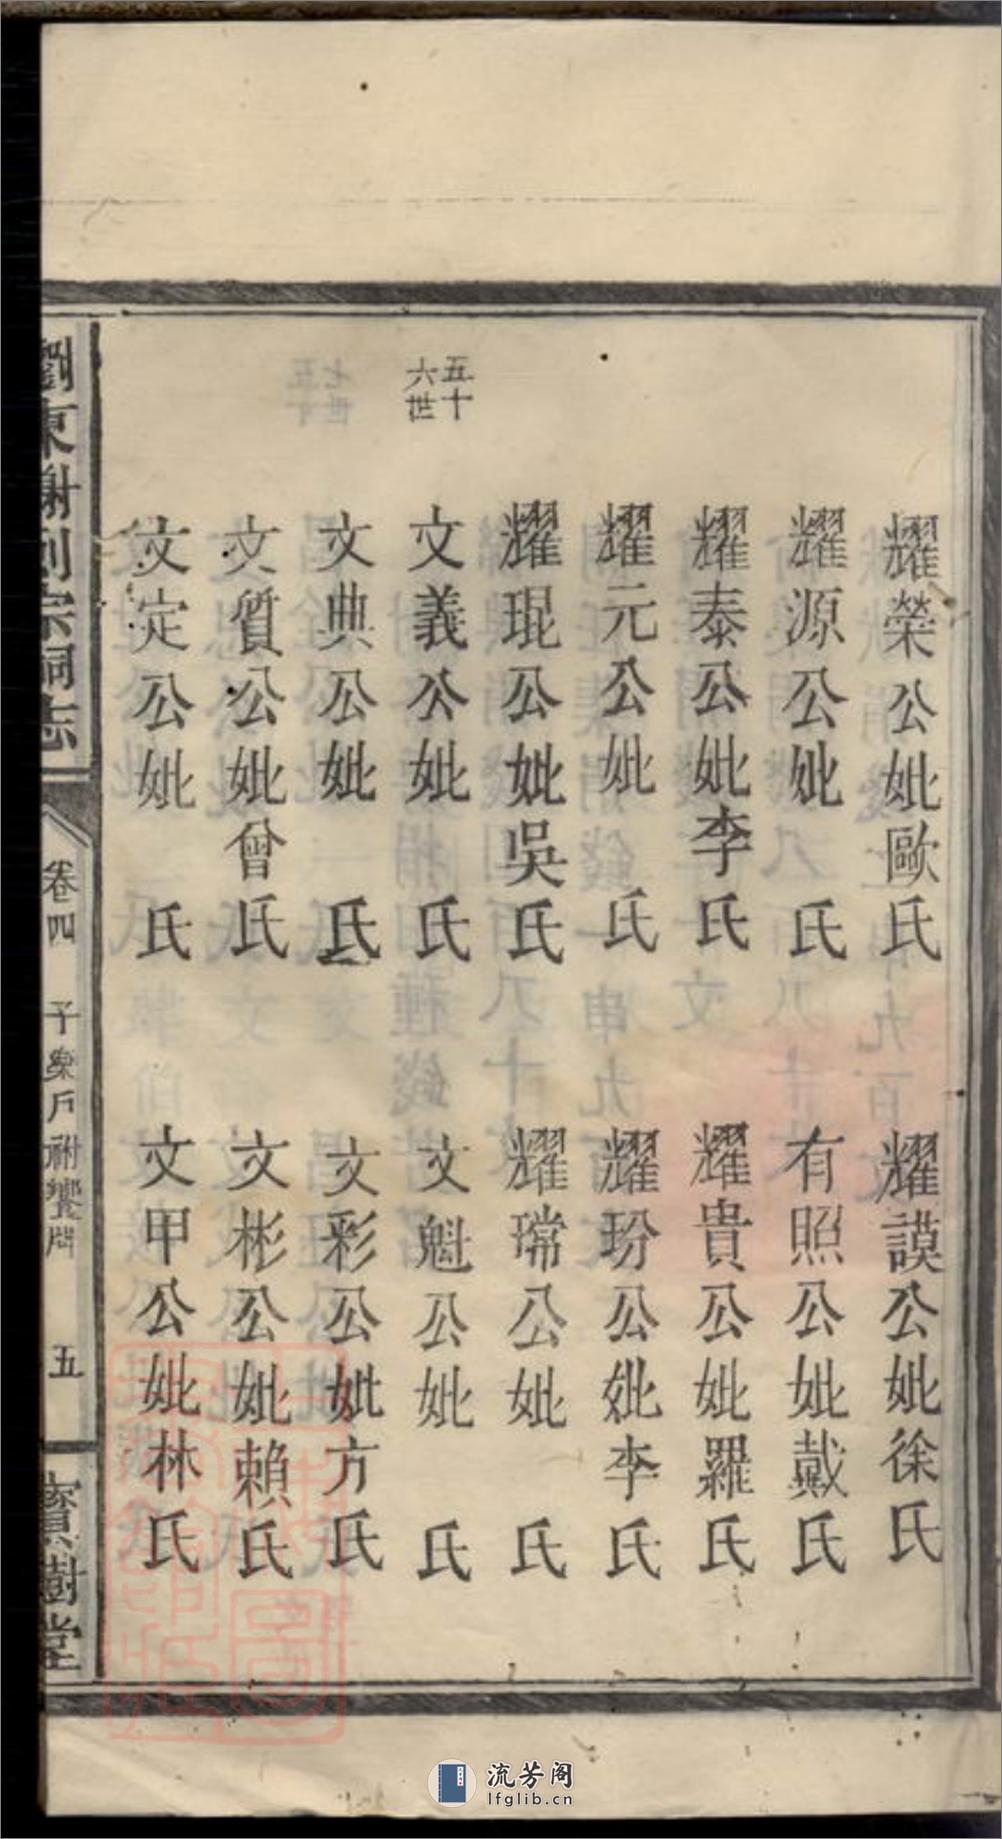 耀榮公妣歐氏
耀謨公妣徐氏
耀源公妣　氏
有照公妣戴氏
耀泰公妣李氏
耀貴公妣羅氏
耀元公妣　氏
耀玢公妣李氏
耀琨公妣吳氏
耀瑺公妣　氏
五十六世
文義公妣　氏
文魁公妣　氏
文典公妣　氏
文彩公妣方氏
文質公妣曾氏
文彬公妣賴氏
文定公妣　氏
文甲公妣林氏
瀏東謝列宗祠志
卷四
子粂戶祔饗牌
五
寶樹堂
流芳阁
lfglib.cn